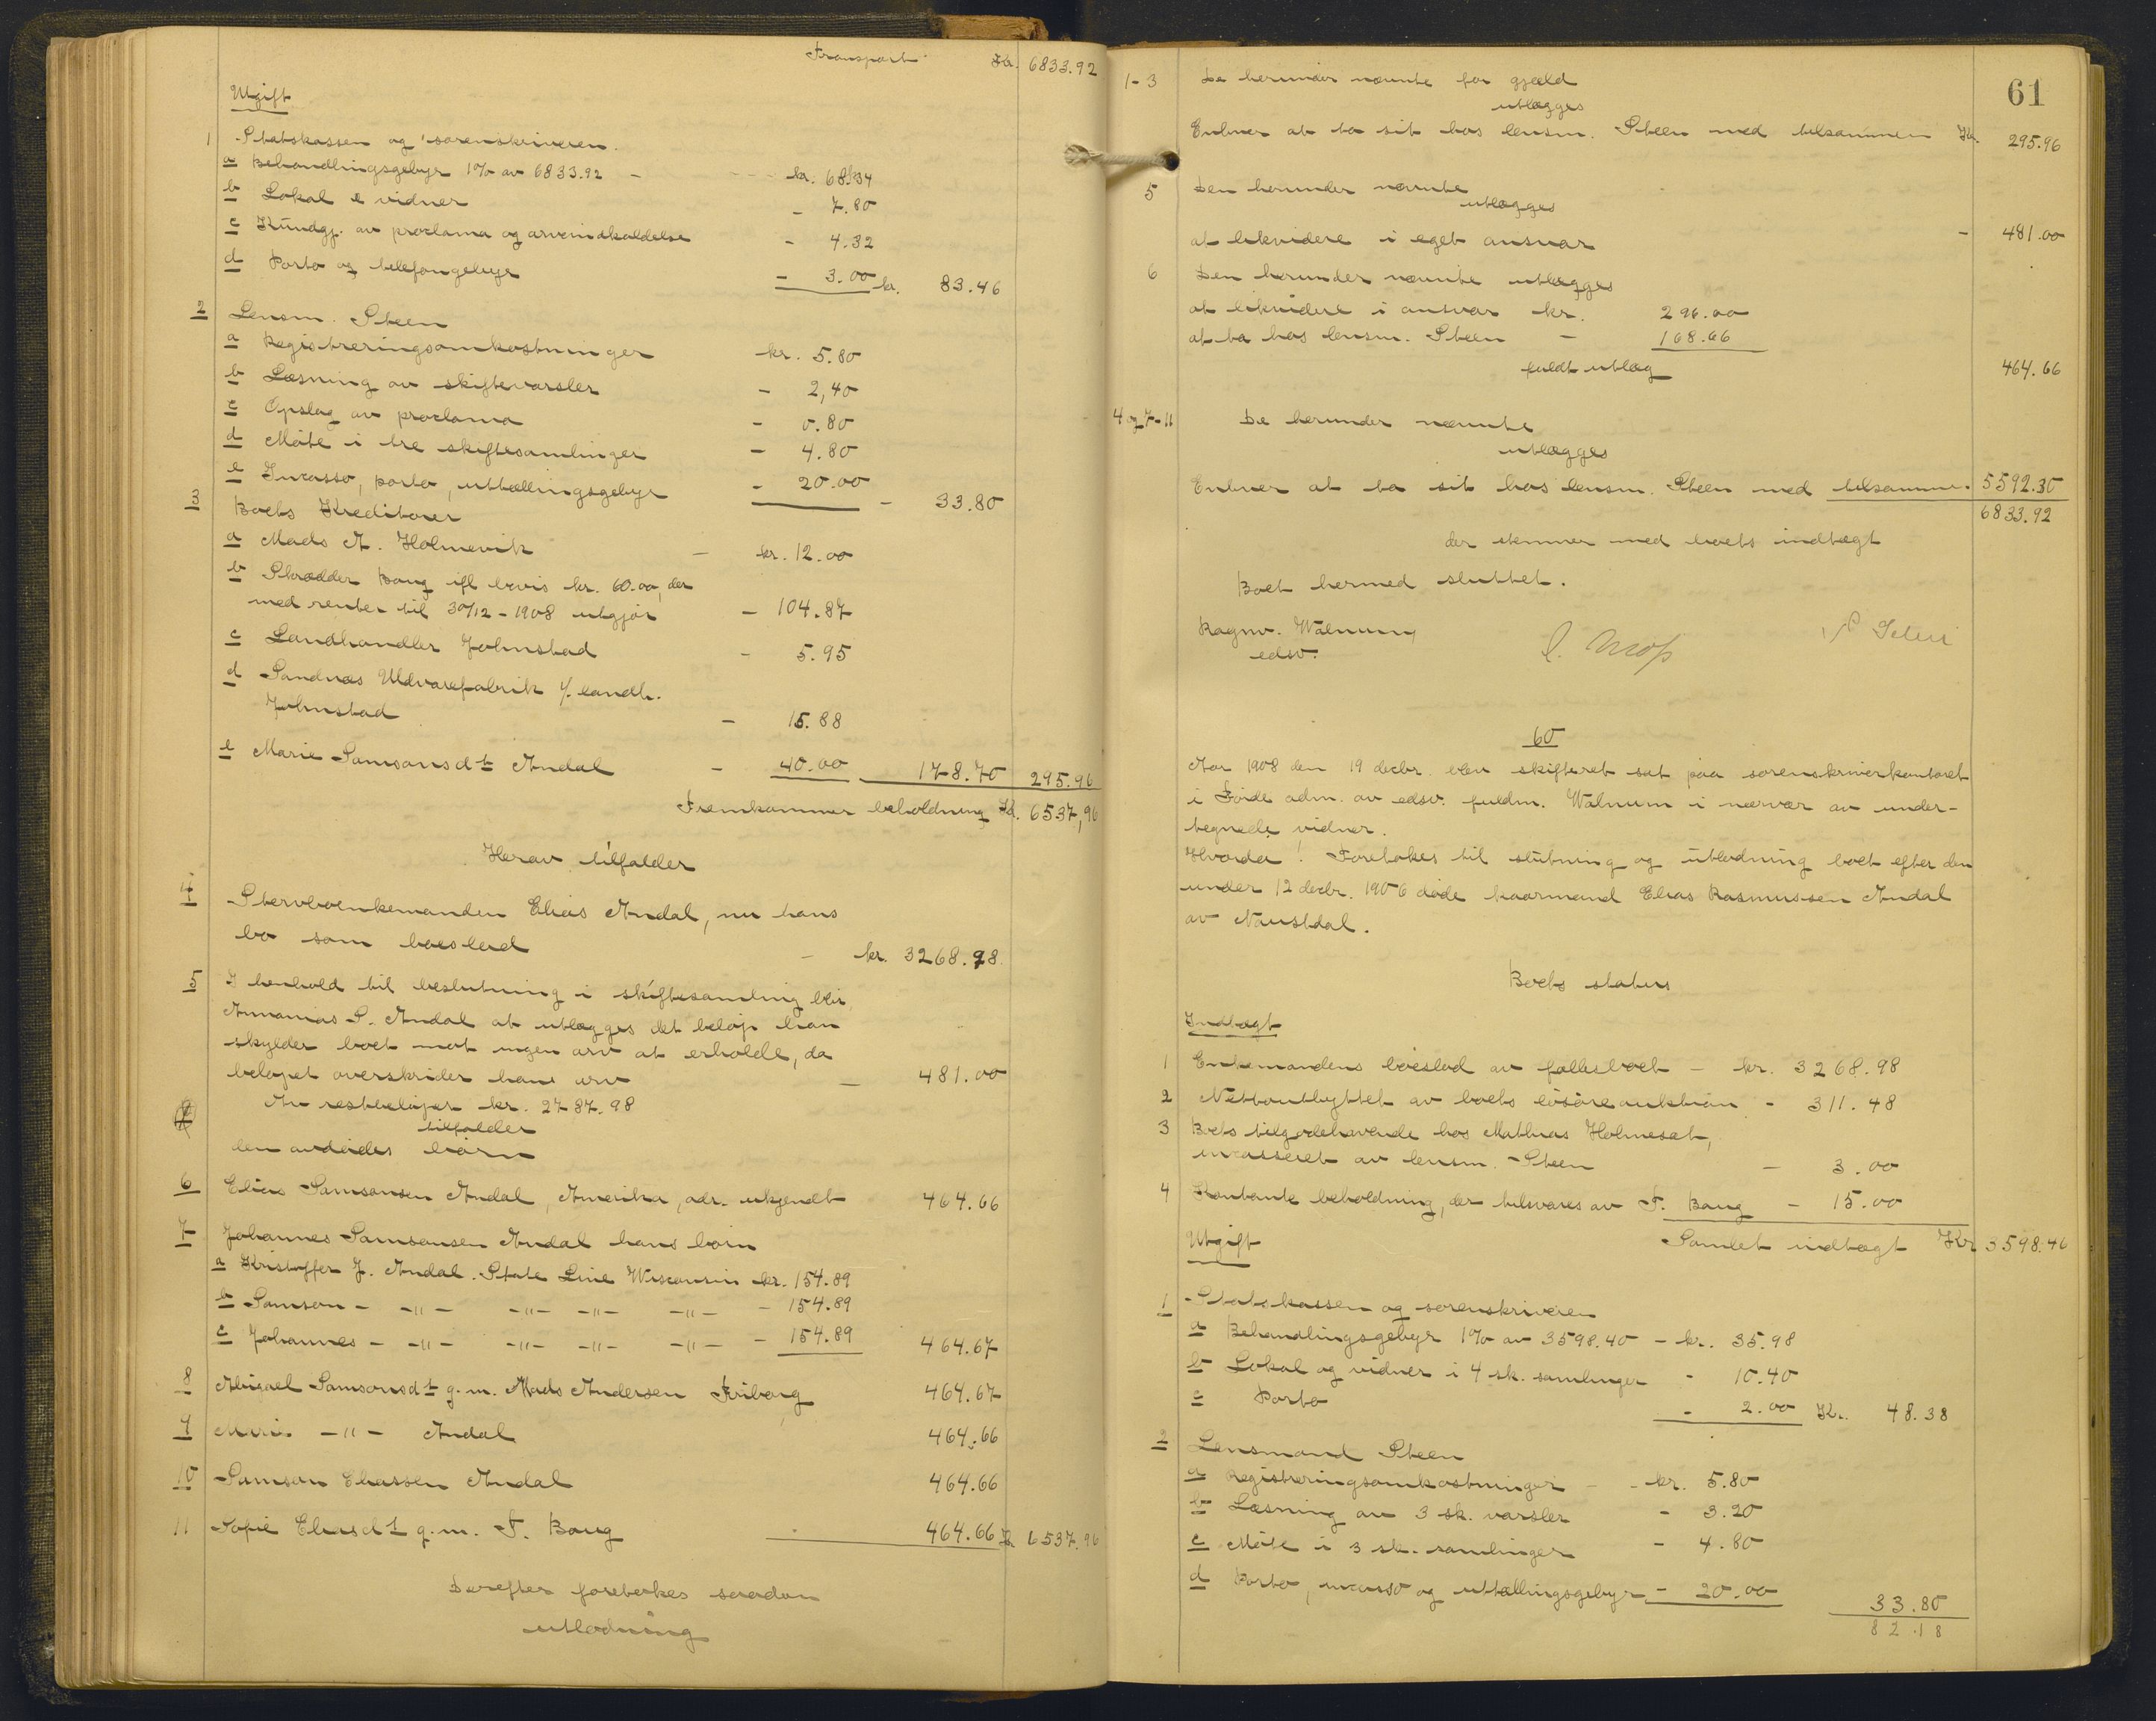 Transport Kr. 6833.92
Utgift
1 Statskassen og sorenskriveren.
a Behandlingsgebyr 1% av 6833.92 - kr. 68.34
b Lokal & vidner - 7.80
c Kundgj. av proclama og arveindkaldelse - 4.32
d Porto og telefongebyr - 3.00 kr. 83.46
2 Lensm. Steen
a Registreringsomkostninger kr. 5.80
b Læsning av skiftevarsler - 2,40
c Opslag av proclama - 0.80
d Møte i tre skiftesamlinger - 4.80
e Incasso, porto, uttællingsgebyr - 20.00 - 33.80
3 Boets Kreditorer
a Mads A. Holmevik - kr. 12.00
b Skrædder Baug ifl bevis kr. 60.00, der
med renter til 30/12-1908 utgjør - 104.87
c Landhandler Johnstad - 5.95
d Sandnes Uldvarefabrik v/ landh.
Johnstad - 15.88
e Marie Samsonsdt Andal - 40.00 178.70 295.96
Fremkommer beholdning Kr. 6537,96
Herav tilfalder
4 Stervboenkemanden Elias Andal, nu hans
bo som boeslod - kr. 3268.98
5 I henhold til beslutning i skiftesamling blir
Annanias S. Andal at utlægges det beløp han
skylder boet mot ingen arv at erholde, da
beløpet overskrider hans arv - 481.00
Av restbeløpet kr. 2787.98
tilfalder
den avdødes børn
6 Elias Samsonsen Andal, Amerika, adr. ukjendt 464.66
7 Johannes Samsonsen Andal hans børn
a Kristoffer J. Andal. State Line Wisconsin kr. 154.89
b Samson - -"- -"- -"- -"- - 154.89
c Johannes - -"- -"- -"- -"- - 154.89 464.67
8 Abigael Samsonsdt g.m. Mads Andersen Friborg 464.67
9 -"- Andal 464.66
10 Samson Eliassen Andal 464.66
11 Sofie Eliasdt g.m. F. Baug 464.66 Kr. 6537.96
Derefter foretokes saadan
utlodning
61
1-3 De herunder nævnte for gjæld
utlægges
Enhver at ta sit hos lensm. Steen med tilsammen Kr. 295.96
5 Den herunder nævnte
utlægges
at likvidere i eget ansvar - 481.00
6 Den herunder nævnte utlægges
at likvidere i ansvar kr. 296.00
at ta hos lensm. Steen - 168.66
fuldt utlæg 464.66
4 og 7-11 De herunder nævnte
utlægges
Enhver at ta sit hos lensm. Steen med tilsammen 5592.30
6833.92
der stemmer med boets indtægt
Boet hermed sluttet.
Ragnv. Walnum
edsv.
60
Aar 1908 den 19 decbr. blev skifteret sat paa sorenskriverkontoret
i Førde adm. av edsv. fuldm. Walnum i nærvær av under-
tegnede vidner.
Hvorda! Foretokes til slutning og utlodning boet efter den
under 12 decbr. 1906 døde kaarmand Elias Rasmussen Andal
av Naustdal.
Boets status
Indtægt
1 Enkemandens boeslod av fællesboet - kr. 3268.98
2 Nettoutbyttet av boets løsøreauktion - 311.48
3 Boets tilgodehavende hos Mathias Holmeset,
incasseret av lensm. Steen - 3.00
4 Kontante beholdning, der tilsvares av F. Baug - 15.00
Utgift Samlet indtægt Kr. 3598.46
1 Statskassen og sorenskriveren
a Behandlingsgebyr 1% av 3598.40 - kr. 35.98
b Lokal og vidner i 4 sk. samlinger - 10.40
c Porto - 2.00 Kr. 48.38
2 Lensmand Steen
a Registreringsomkostninger - - kr. 5.80
b Læsning av 3 sk. varsler - 3.20
c Møte i 3 sk. samlinger - 4.80
d Porto, incasso og uttællingsgebyr - 20.00 33.80
82.18